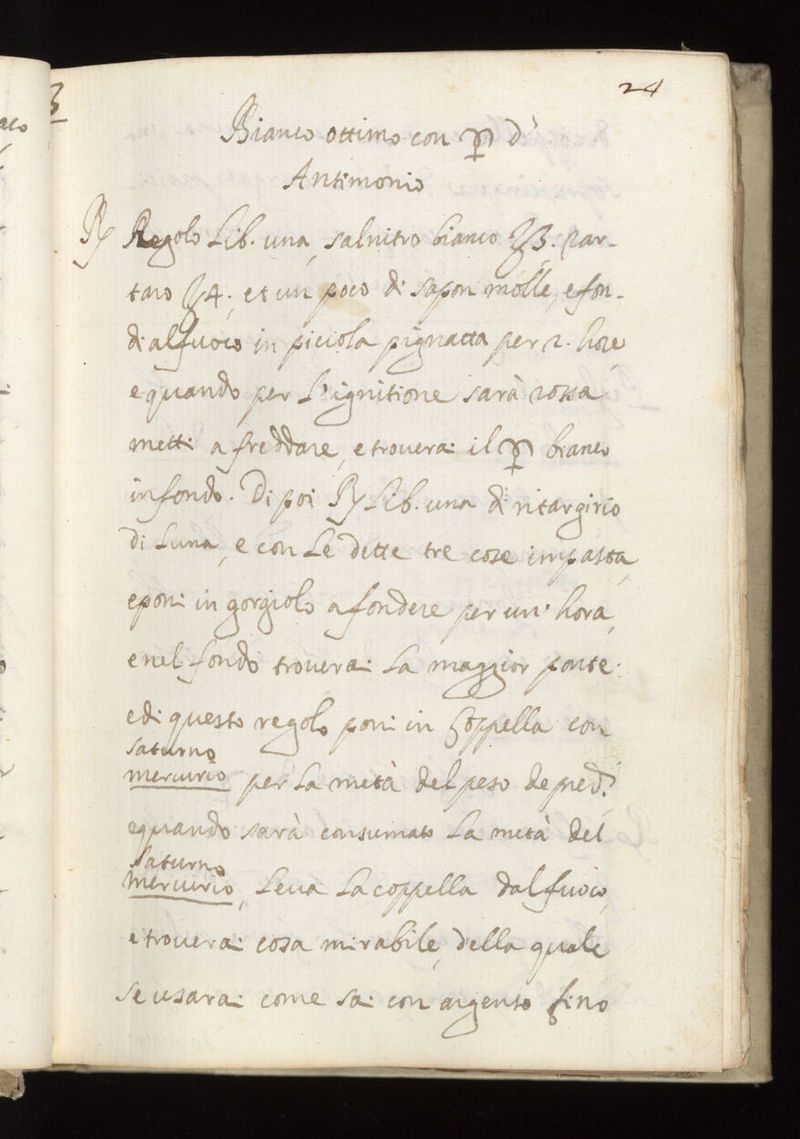 24
Bianco ottimo con ♇ d'
Antimonio
℞ Regolo Lib. una, salnitro bianco ℥3. tar-
taro ℥4. et un poco di sapon molle, e fon-
di al fuoco in piccola pignatta per 2. hore,
e quando per L'ignitione sarà rossa
metti a freddare, e troverai il ♇ bianco
in fondo. Di poi ℞ Lib. una di ritargirio
di Luna, e con Le dette tre cose impasta,
e poni in gorgiolo a fondere per un' hora,
e nel fondo troverai La maggior parte.
e di questo regolo poni in Coppella con
saturno
mercurio per La metà del peso
e quando sarà consumato La metà del
saturno
mercurio, Leva La coppella dal fuoco,
e troverai cosa mirabile, della quale
se usarai come sai con argento fino